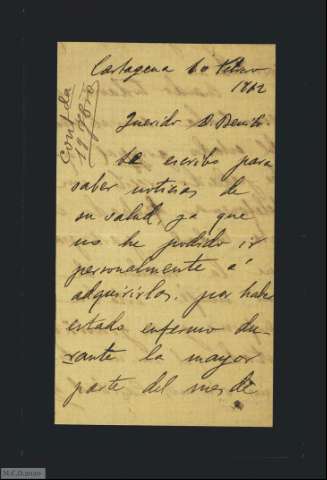 Cartagena 10 Febro
1912
contda
19 Febro
Querido D. Benito:
Le escribo para
saber noticias de
su salud, ya que
no he podido ir
personalmente á
adquirirlas, por haber
estado enfermo du-
rante la mayor
parte del mes de